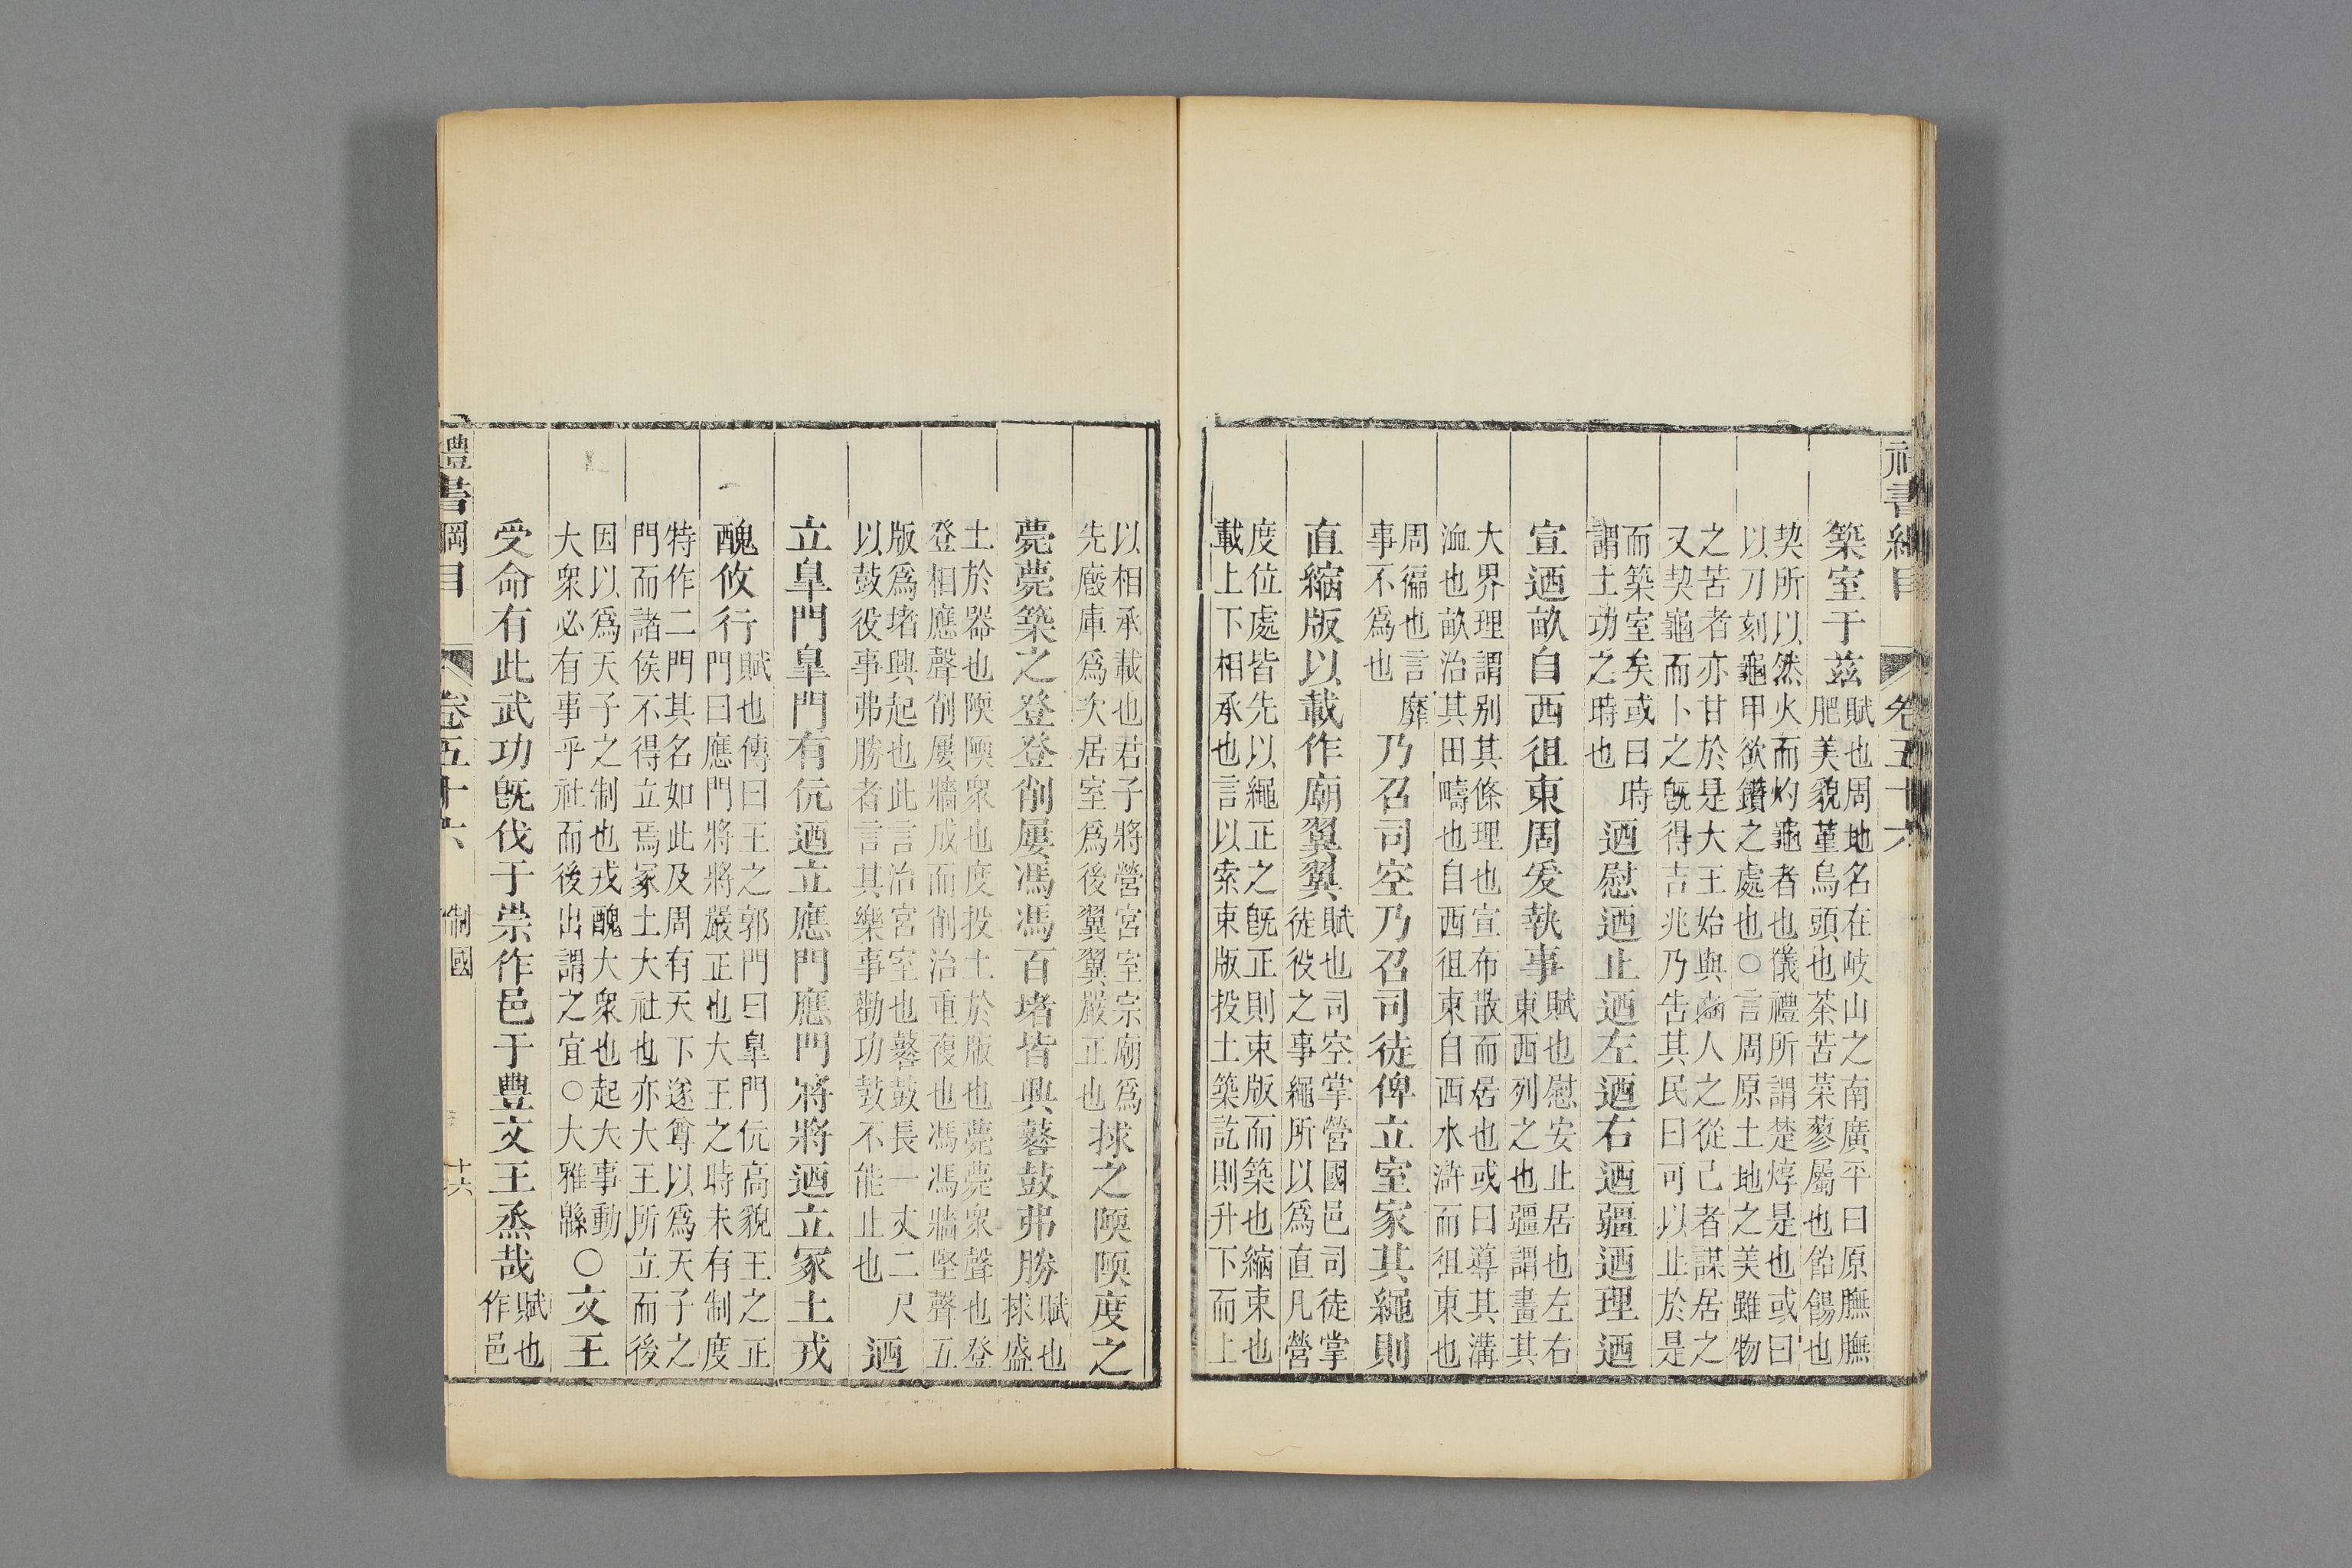 書綱目 卷五十六
築室于茲
賦也周地名在岐山之南廣平曰原膴膴
肥美貌菫烏頭也荼苦菜蓼屬也飴餳也
契所以然火而灼龜者也儀禮所謂楚焞是也或曰
以刀刻龜甲欲鑽之處也○言周原土地之美雖物
之苦者亦甘於是大王始與豳人之從己者謀居之
又契龜而卜之旣得吉兆乃告其民曰可以止於是
而築室矣或曰時
謂土功之時也
迺慰迺止迺左迺右迺疆迺理迺
宣迺畝自西徂東周爰執事
賦也慰安止居也左右
東西列之也疆謂畫其
大界理謂別其條理也宣布散而居也或曰導其溝
洫也畝治其田疇也自西徂東自西水滸而徂東也
周徧也言靡
事不爲也
乃召司空乃召司徒俾立室家其繩則
直縮版以載作廟翼翼
賦也司空掌營國邑司徒掌
徒役之事繩所以爲直凡營
度位處皆先以繩正之旣正則束版而築也縮束也
載上下相承也言以索束版投土築訖則升下而上
以相承載也君子將營宮室宗廟爲
先廏庫爲次居室爲後翼翼嚴正也
捄之陾陾度之
薨薨築之登登削屢馮馮百堵皆興鼛鼓弗勝
賦也
捄盛
土於器也陾陾衆也度投土於版也薨薨衆聲也登
登相應聲削屢牆成而削治重複也馮馮牆堅聲五
版爲堵興起也此言治宮室也鼛鼓長一丈二尺
以鼓役事弗勝者言其樂事勸功鼓不能止也
迺
立臯門臯門有伉迺立應門應門將將迺立冢土戎
醜攸行
賦也傳曰王之郭門曰臯門伉高貌王之正
門曰應門將將嚴正也大王之時未有制度
特作二門其名如此及周有天下遂尊以爲天子之
門而諸侯不得立焉冢土大社也亦大王所立而後
因以爲天子之制也戎醜大衆也起大事動
大衆必有事乎社而後出謂之宜○大雅緜
○文王
受命有此武功旣伐于崇作邑于豐文王烝哉
賦也
作邑
禮書綱目 卷五十六 制國 十六